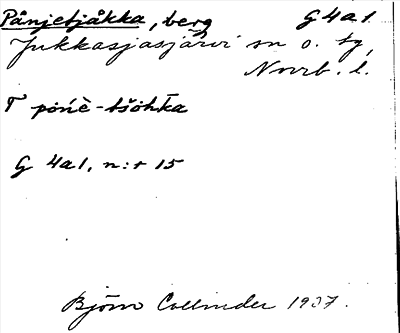 Pånjetjåkka, berg G 4a1.
Jukkasjasjärvi sn o. tg,
Norrb. l.
T pońè-tšohka
G 4a1, n:r 15
Björn Collinder 1937.